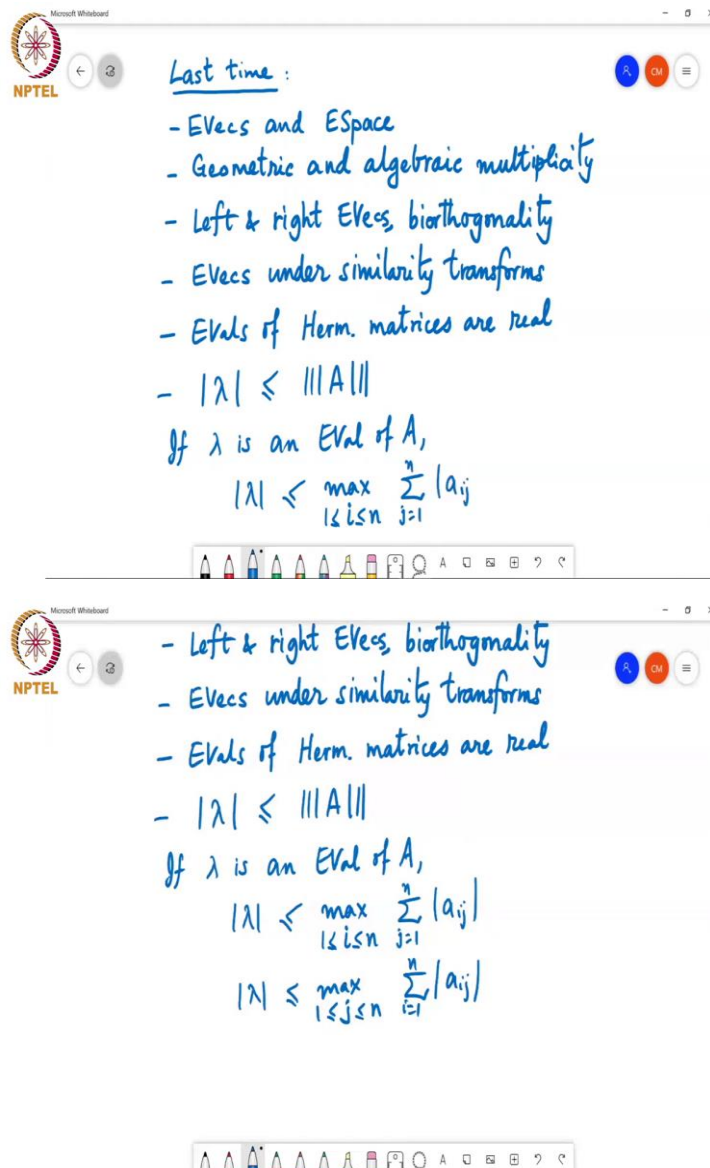 Microsoft Whiteboard
NPTEL
CM
Last time :
- EVecs and ESpace
- Geometric and algebraic multiplicity
- Left & right EVecs, biorthogonality
- EVecs under similarity transforms
- EVals of Herm. matrices are real
- |λ| ≤ |||A|||
If λ is an EVal of A,
|λ| ≤ max_{1≤i≤n} Σ_{j=1}^{n} |a_{ij}
A
Microsoft Whiteboard
NPTEL
CM
- Left & right EVecs, biorthogonality
- EVecs under similarity transforms
- EVals of Herm. matrices are real
- |λ| ≤ |||A|||
If λ is an EVal of A,
|λ| ≤ max_{1≤i≤n} Σ_{j=1}^{n} |a_{ij}|
|λ| ≤ max_{1≤j≤n} Σ_{i=1}^{n} |a_{ij}|
A